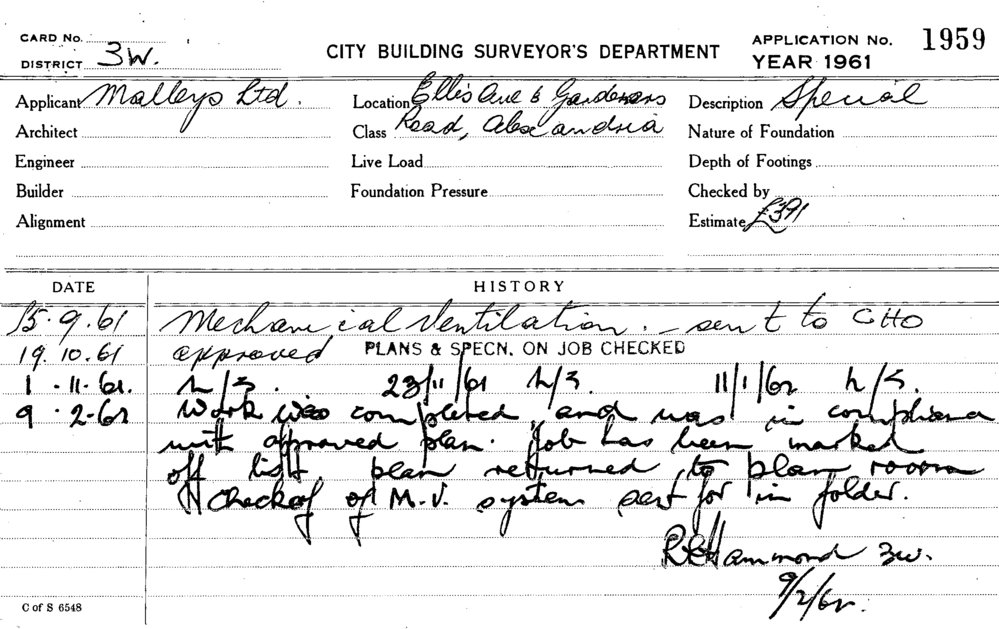 CARD No.
DISTRICT 3W.
CITY BUILDING SURVEYOR'S DEPARTMENT
APPLICATION No. 1959
YEAR 1961
Applicant Malleys Ltd. Location Ellis Ave & Gardeners Description Special
Architect Class Road, Alexandria Nature of Foundation
Engineer Live Load Depth of Footings
Builder Foundation Pressure Checked by
Alignment Estimate £391
DATE HISTORY
15.9.61 Mechanical Ventilation. - sent to CHO
19.10.61 approved PLANS & SPECN. ON JOB CHECKED
1.11.61. h/s. 23/11/61 h/s. 11/1/62 h/s.
9.2.62 Work was completed and was in compliance
with approved plan. Job has been marked
off list plan returned to plan room
Check of M.V. system sent for in folder.
R Hammond 3w.
9/2/62.
C of S 6548